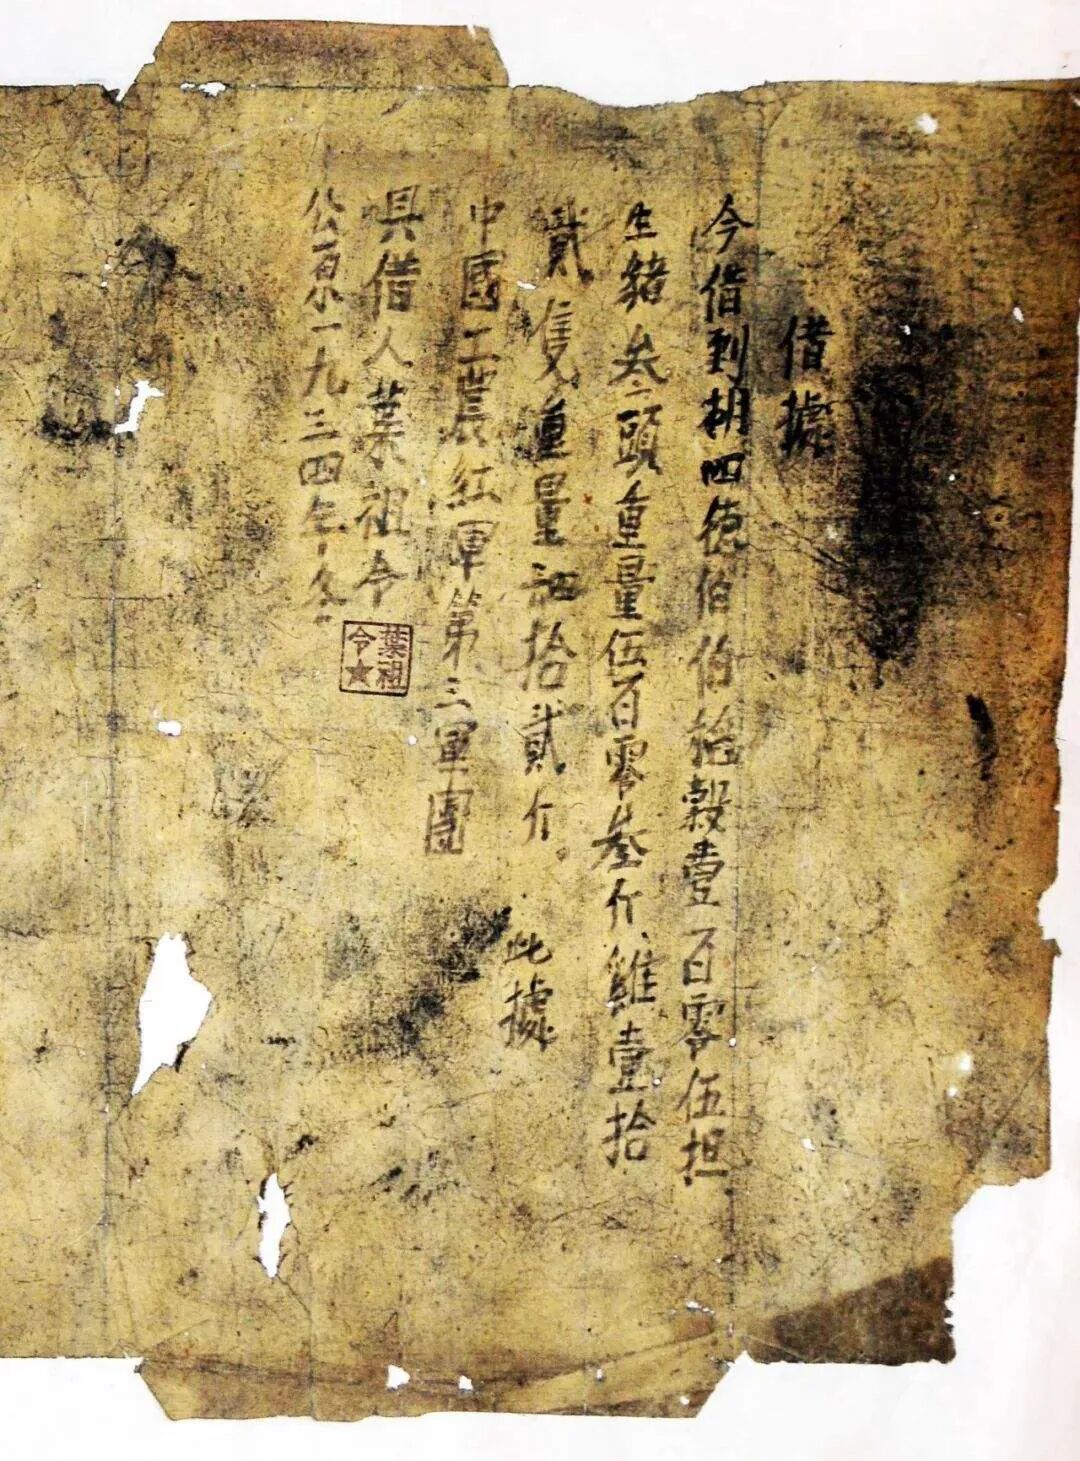 借據
今借到胡四德伯伯稻穀壹百零伍担
生豬叁頭重量伍百零叁斤雞壹拾
貳隻重量拾貳斤。此據
中國工農紅軍第三軍團
具借人葉祖令
葉祖令★
公一九三四年冬